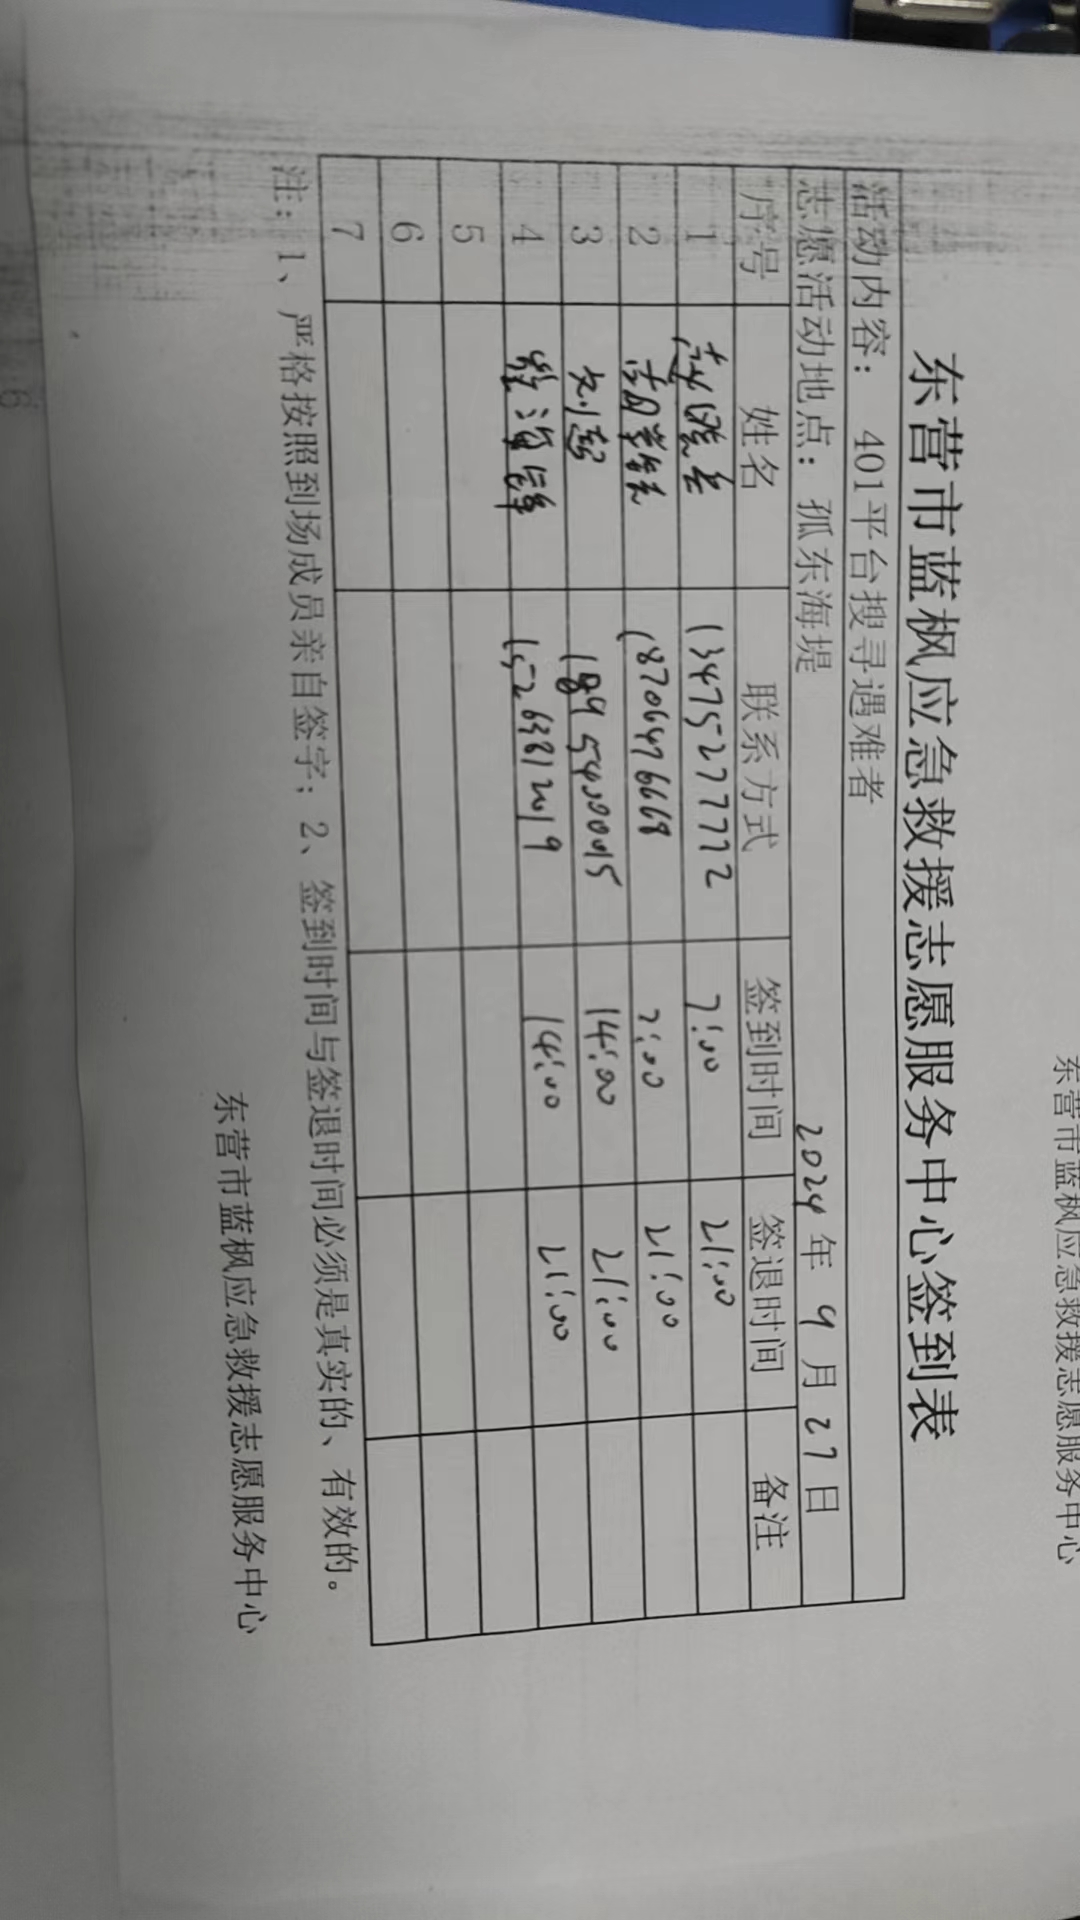 东营市蓝枫应急救援志愿服务中心签到表
活动内容： 401平台搜寻遇难者
志愿活动地点：孤东海堤 2024年9月27日
序号 姓名 联系方式 签到时间 签退时间 备注
1 13475277772 7:00 21:00
2 18706476668 7:00 21:00
3 刘超 14:00 21:00
4 15263812019 14:00 21:00
5
6
7
注：1、严格按照到场成员亲自签字；2、签到时间与签退时间必须是真实的、有效的。
东营市蓝枫应急救援志愿服务中心
东营市蓝枫应急救援志愿服务中心